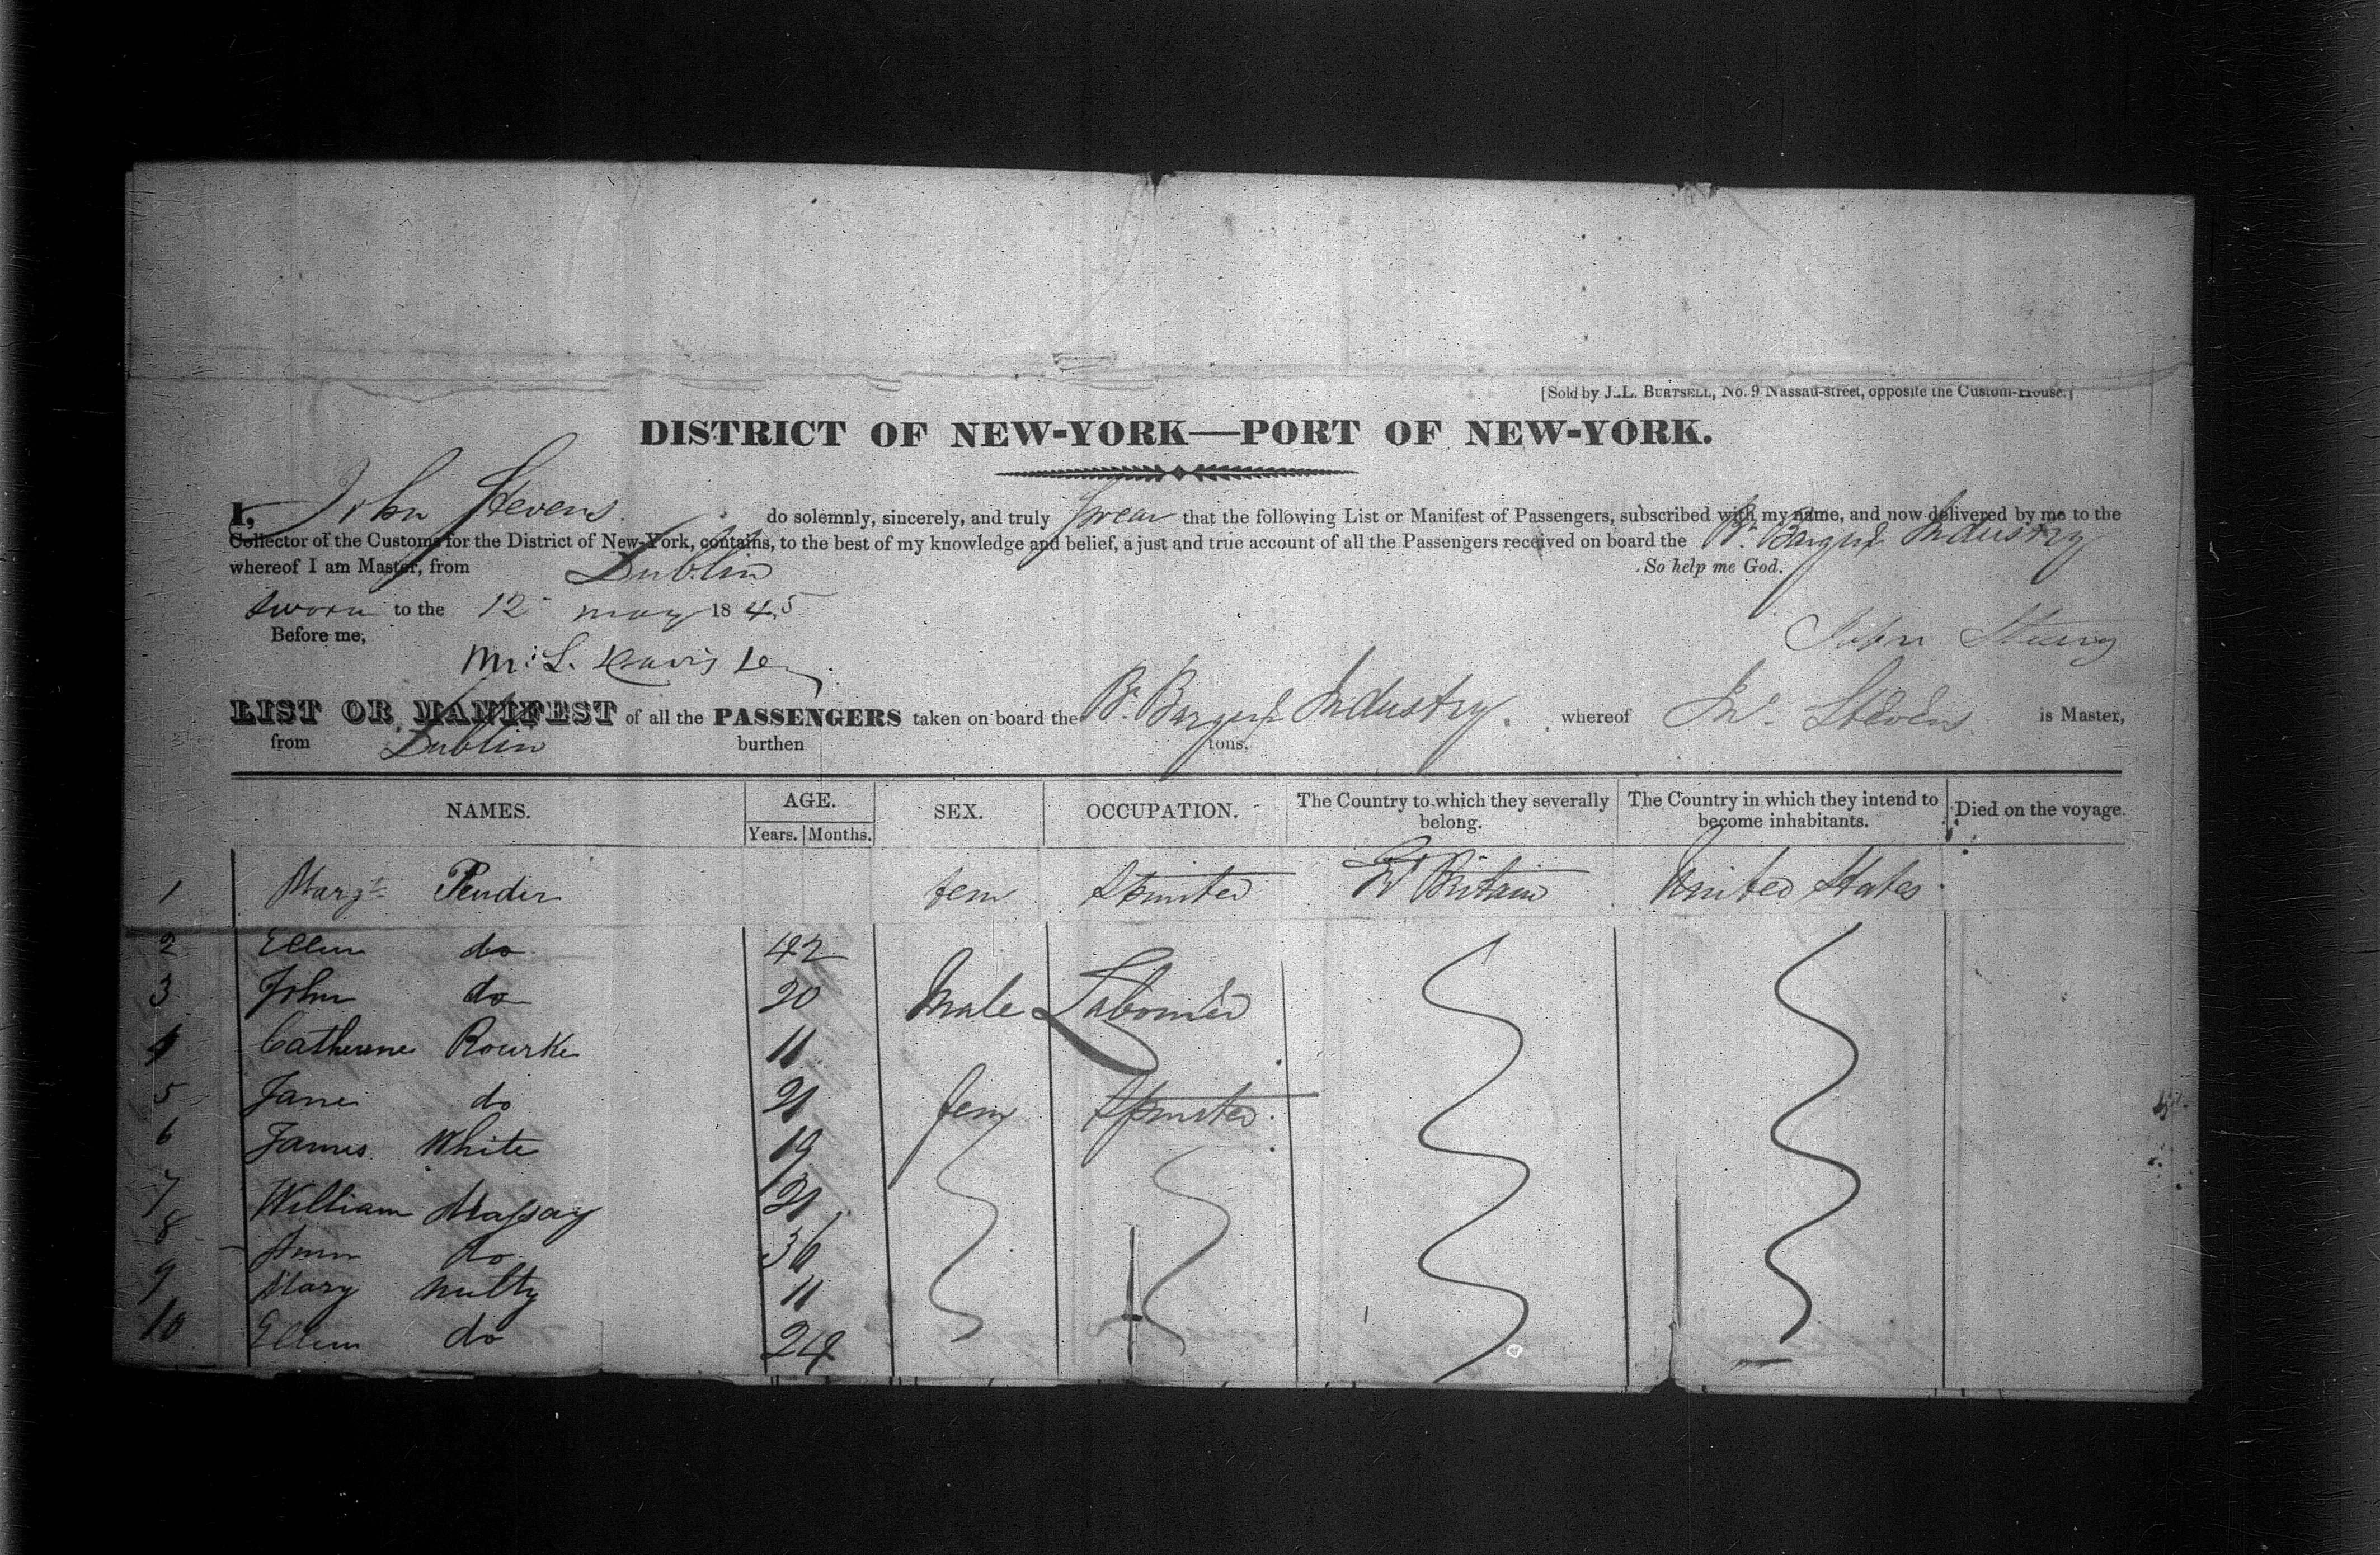 [Sold by J. L. BURTSELL, No. 9 Nassau-street, opposite the Custom-House.]
DISTRICT OF NEW-YORK—PORT OF NEW-YORK.
I, John Stevens do solemnly, sincerely, and truly Swear that the following List or Manifest of Passengers, subscribed with my name, and now delivered by me to the
Collector of the Customs for the District of New-York, contains, to the best of my knowledge and belief, a just and true account of all the Passengers received on board the Br. Barque Industry
whereof I am Master, from Dublin So help me God.
Sworn to the 12 may 1845
Before me, John Stevens
M. L. Davis
LIST OR MANIFEST of all the PASSENGERS taken on board the Br. Barque Industry. whereof Jno. Stevens is Master,
from Dublin burthen tons.
NAMES. AGE. SEX. OCCUPATION. The Country to which they severally belong. The Country in which they intend to become inhabitants. Died on the voyage.
Years. Months.
1 Margt. Pender fem Spinster Gt Britain United States
2 Ellen do 42
3 John do 20 Male Labourer
4 Catherine Rourke 11
5 Jane do 21 fem Spinster
6 James White 19
7 William Massay 21
8 Ann do 36
9 Mary Nulty 11
10 Ellen do 24